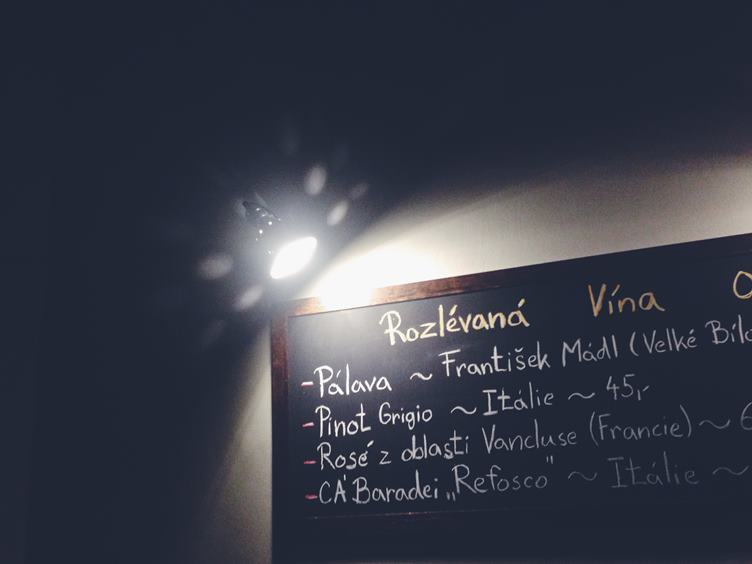 Rozlévaná Vína
-Pálava ~ František Mádl (Velké Bílo
-Pinot Grigio ~ Itálie ~ 45,-
-Rosé z oblasti Vancluse (Francie) ~ 6
-CA' Baradei „Refosco" ~ Itálie ~